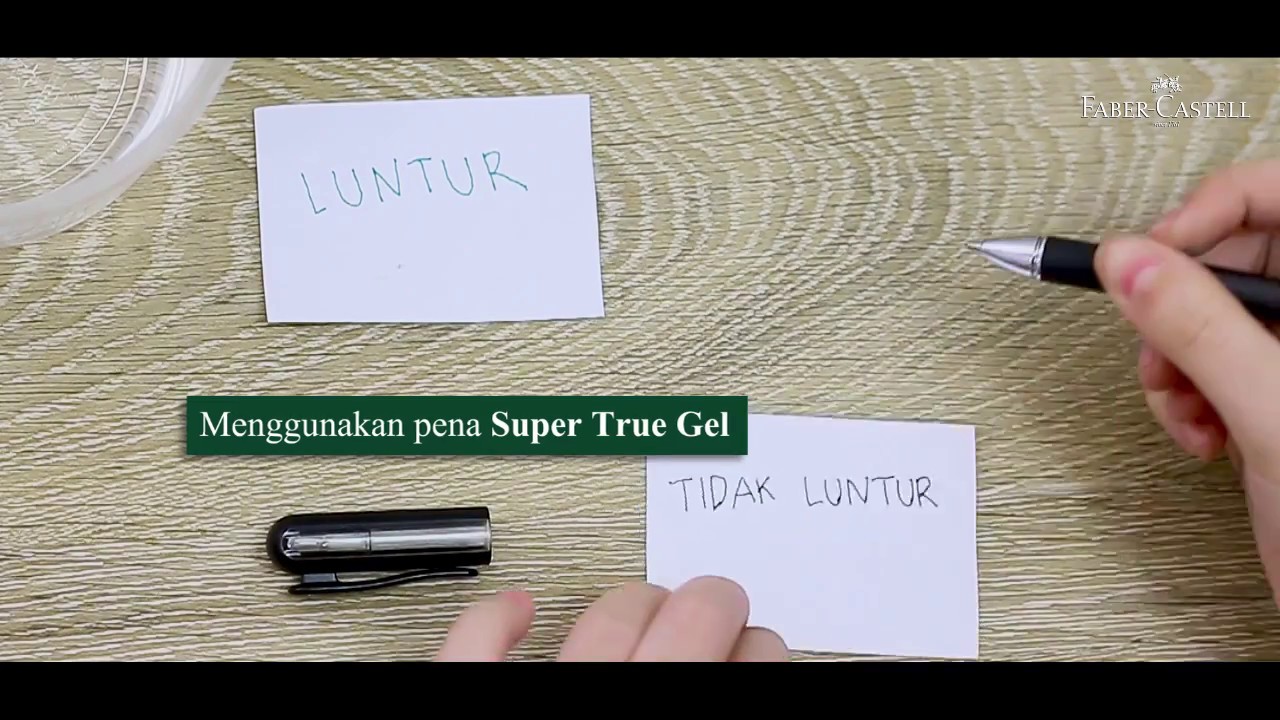 FABER-CASTELL
LUNTUR
Menggunakan pena Super True Gel
TIDAK LUNTUR